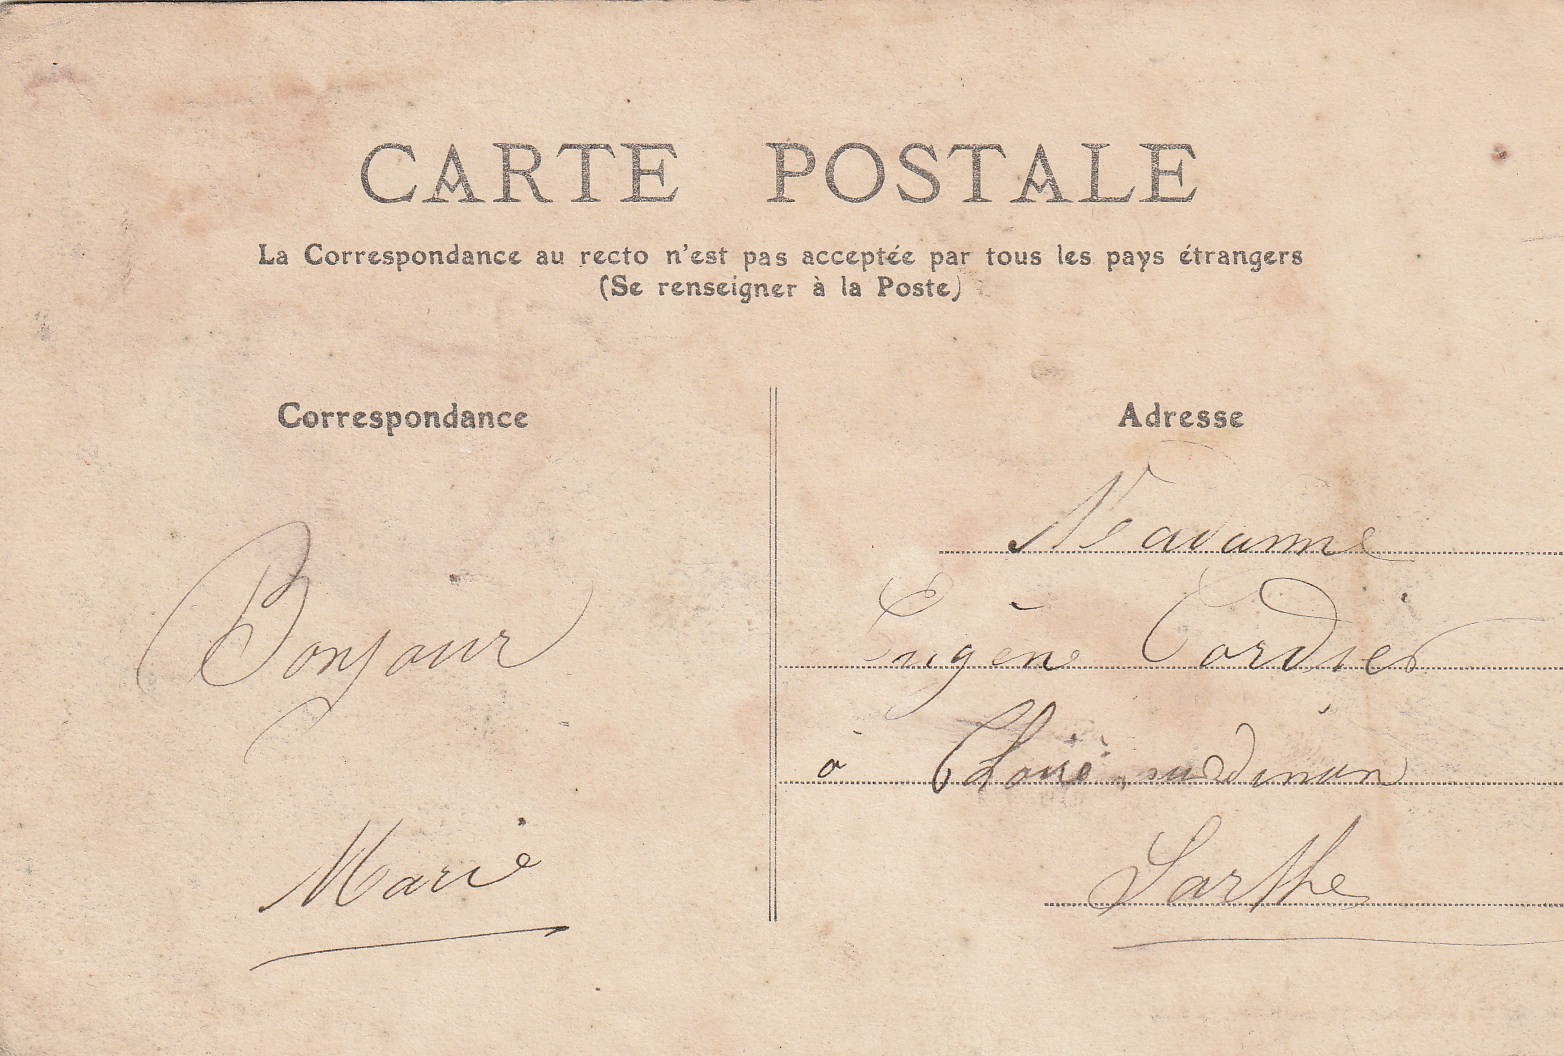 CARTE POSTALE
La Correspondance au recto n'est pas acceptée par tous les pays étrangers
(Se renseigner à la Poste)
Correspondance
Bonjour
Marie
Adresse
Madame
Eugène Cordier
à
Sarthe